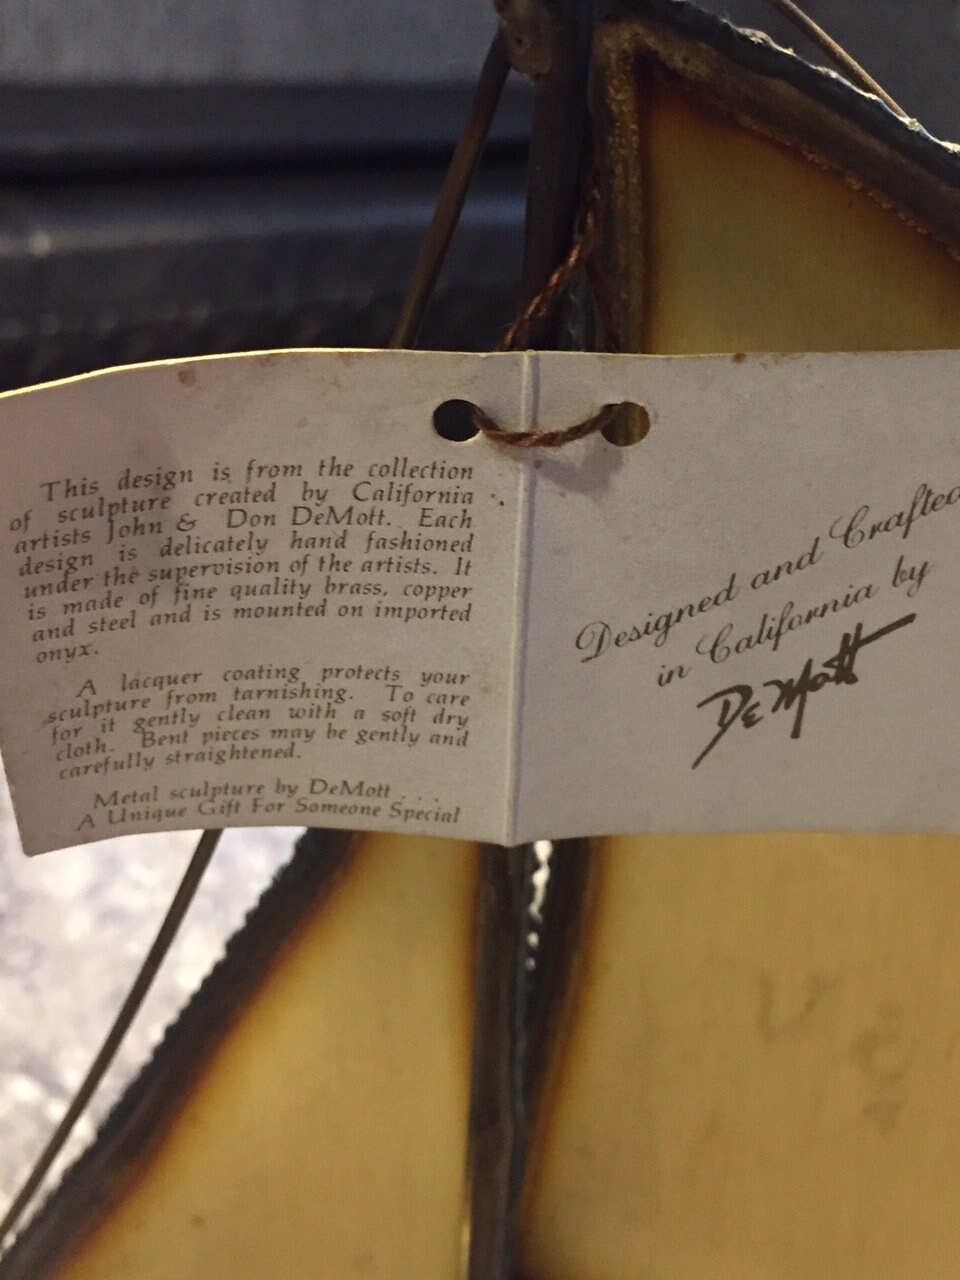 This design is from the collection
of sculpture created by California
artists John & Don DeMott. Each
design is delicately hand fashioned
under the supervision of the artists. It
is made of fine quality brass, copper
and steel and is mounted on imported
onyx.
A lacquer coating protects your
sculpture from tarnishing. To care
for it gently clean with a soft dry
cloth. Bent pieces may be gently and
carefully straightened.
Metal sculpture by DeMott . . .
A Unique Gift For Someone Special
Designed and Crafted
in California by
DeMott